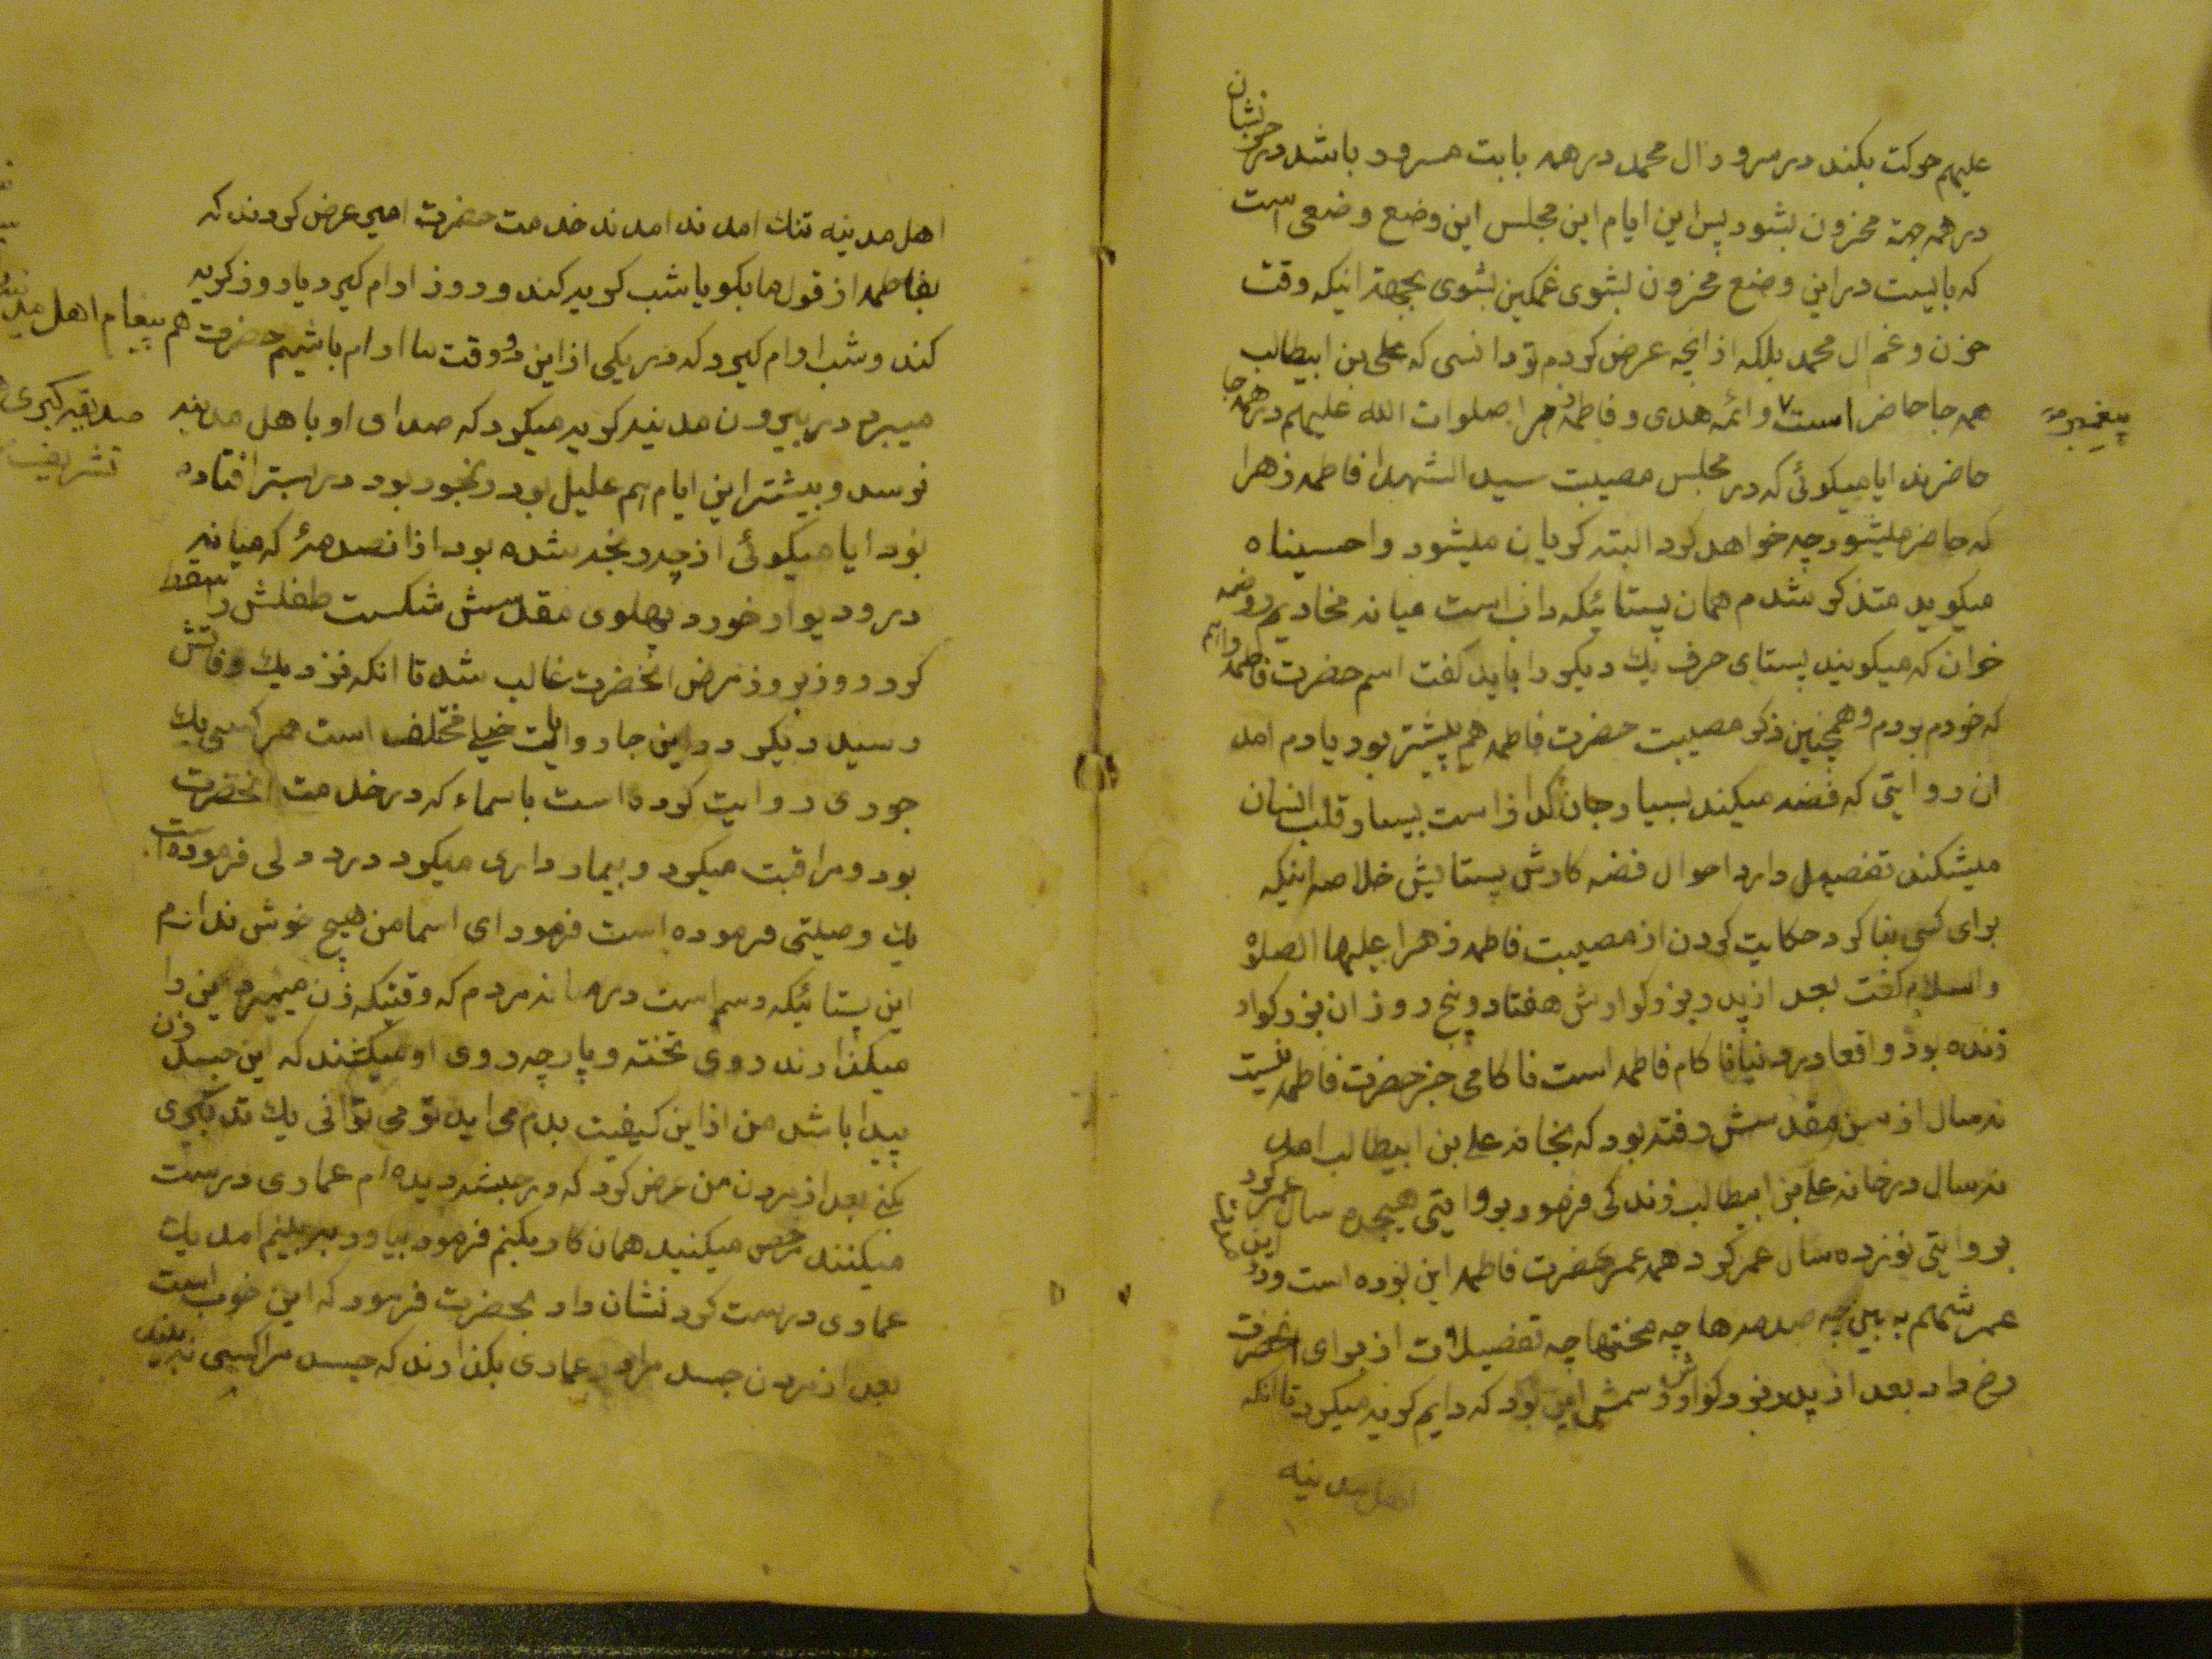 علیهم حرکت بکند در سرور ال محمد در همه بابت مسرور باشد در حزنشان
در همه جهة محزون بشود پس این ایام این مجلس این وضع وضعی است
که بایست در این وضع محزون بشوی غمکین بشوی بجهة اینکه وقت
حزن و غم ال محمد بلکه از انچه عرض کردم تو دانسی که علی بن ابیطالب
همه جا حاضر است و ائمه هدی و فاطمه زهرا صلوات الله علیهم در همه جا
پیغمبر
حاضرند ایا میکوئی که در مجلس مصیبت سید الشهدا فاطمه زهرا
که حاضر میشود چه خواهد کرد البته کریان میشود واحسیناه
میکوید متذکر شدم همان پستائیکه داب است میانه مخادیم روضه
خوان که میکویند پستای حرف یك دیکر را باید کفت اسم حضرت فاطمه را
که خودم بودم و همچنین ذکر مصیبت حضرت فاطمه هم پیشتر بود یادم امد
ان روایتی که فضه میکند بسیار جان کداز است بسیار قلب انسان
میشکند تفصیل دارد احوال فضه کارش پستایش خلاصه اینکه
برای کسی بنا کرد حکایت کردن از مصیبت فاطمه زهرا علیها الصلاة
والسلام کفت بعد از پدر بزرکوارش هفتاد و پنج روز ان بزرکوار
زنده بود واقعا در دنیا ناکام فاطمه است ناکامی جز حضرت فاطمه نیست
نه سال از سن مقدسش رفته بود که بخانه علی بن ابیطالب امد
نه سال در خانه علی بن ابیطالب زندکی فرمود بروایتی هیجده سال عمر کرد
بروایتی نوزده سال عمر کرد همه عمر حضرت فاطمه این بوده است و در این
عمر شم به بین چه صدمه ها چه محنتها چه تفضیلات از برای انحضرت
رخ داد بعد از پدر بزرکوارش رسمش این بود که دایم کریه میکرد تا انکه
اهل مدینه
اهل مدینه تنك امدند امدند خدمت حضرت امیر عرض کردند که
بفاطمه از قول ما بکو یا شب کریه کند و روز ارام کیرد یا روز کریه
کند و شب ارام کیرد که در یکی از این دو وقت ما ارام باشیم حضرت هم پیغام اهل مدینه
صدیقه کبری
تشریف
میبرد در بیرون مدینه کریه میکرد که صدای او باهل مدینه
نرسد و بیشتر این ایام هم علیل بود رنجور بود در بستر افتاده
بود ایا میکوئی از چه رنجه شده بود از انصدمۀ که میانه
در و دیوار خورد پهلوی مقدسش شکست طفلش را سقط
کرد روز بروز مرض انحضرت غالب شد تا انکه نزدیك وفاتش
رسید دیکر در این جا روایات خیلی مختلف است هر کسی یك
جوری روایت کرده است باسماء که در خدمت انحضرت
بود و مراقبت میکرد و بیمار داری میکرد درد دلی فرموده است
یك وصیتی فرموده است فرمود ای اسما من هیچ خوش ندارم
این پستائیکه رسم است در میانه مردم که وقتیکه زن میمیرد این را
میکذارند روی تخته و پارچه روی او میکشند که این جسد زن
پیدا باشد من از این کیفیت بدم می اید تو می توانی یك تدبیری
بکنی بعد از مردن من عرض کرد که در حبشه دیده ام عماری درست
میکنند مرخص میکنید همان کار بکنم فرمود بیاور ببینم امد یك
عماری درست کرد نشان داد بحضرت فرمود که این خوب است
بعد از مردن جسد مرا در عماری بکذارند که جسد مرا کسی نه بیند